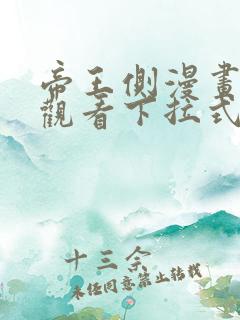 帝王側漫畫
觀看下拉式
十三余
未经同意禁止转载